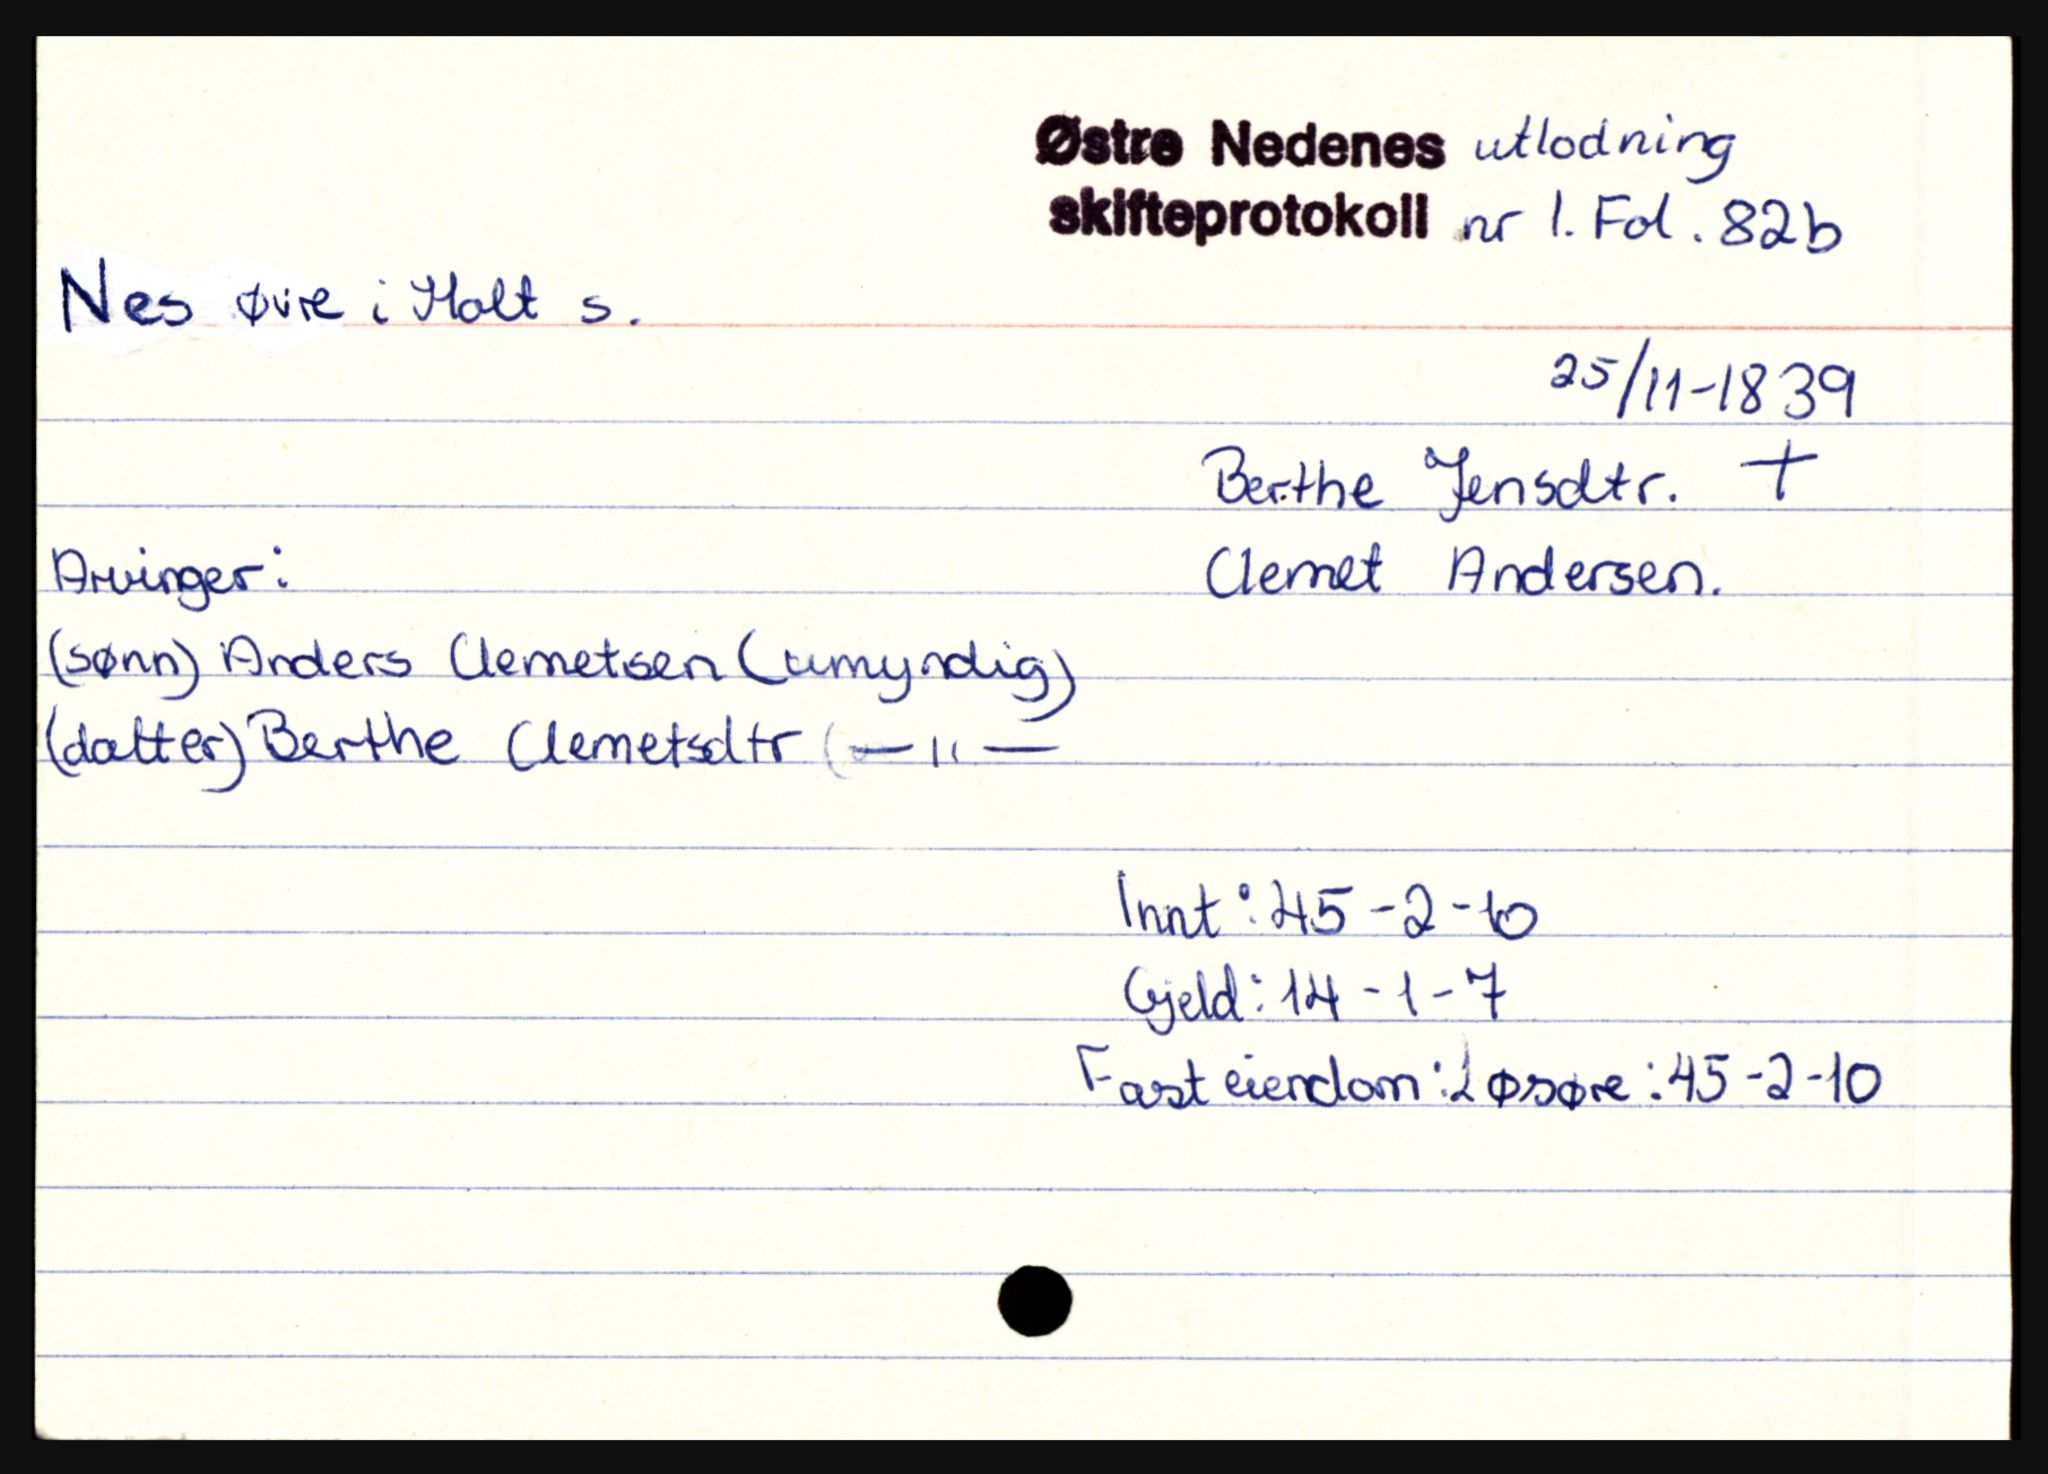 Østre Nedenes utlodning
skifteprotokoll nr 1. Fol. 82b
Nes øvre i Holt s.
25/11-1839
Berthe Jensdtr. †
Arvinger:
Clemet Andersen.
(sønn) Anders Clemetsen (umyndig)
(datter) Berthe Clemetsdtr (— " —
Innt: 45-2-10
Gjeld: 14-1-7
Fast eiendom: Løsøre: 45-2-10